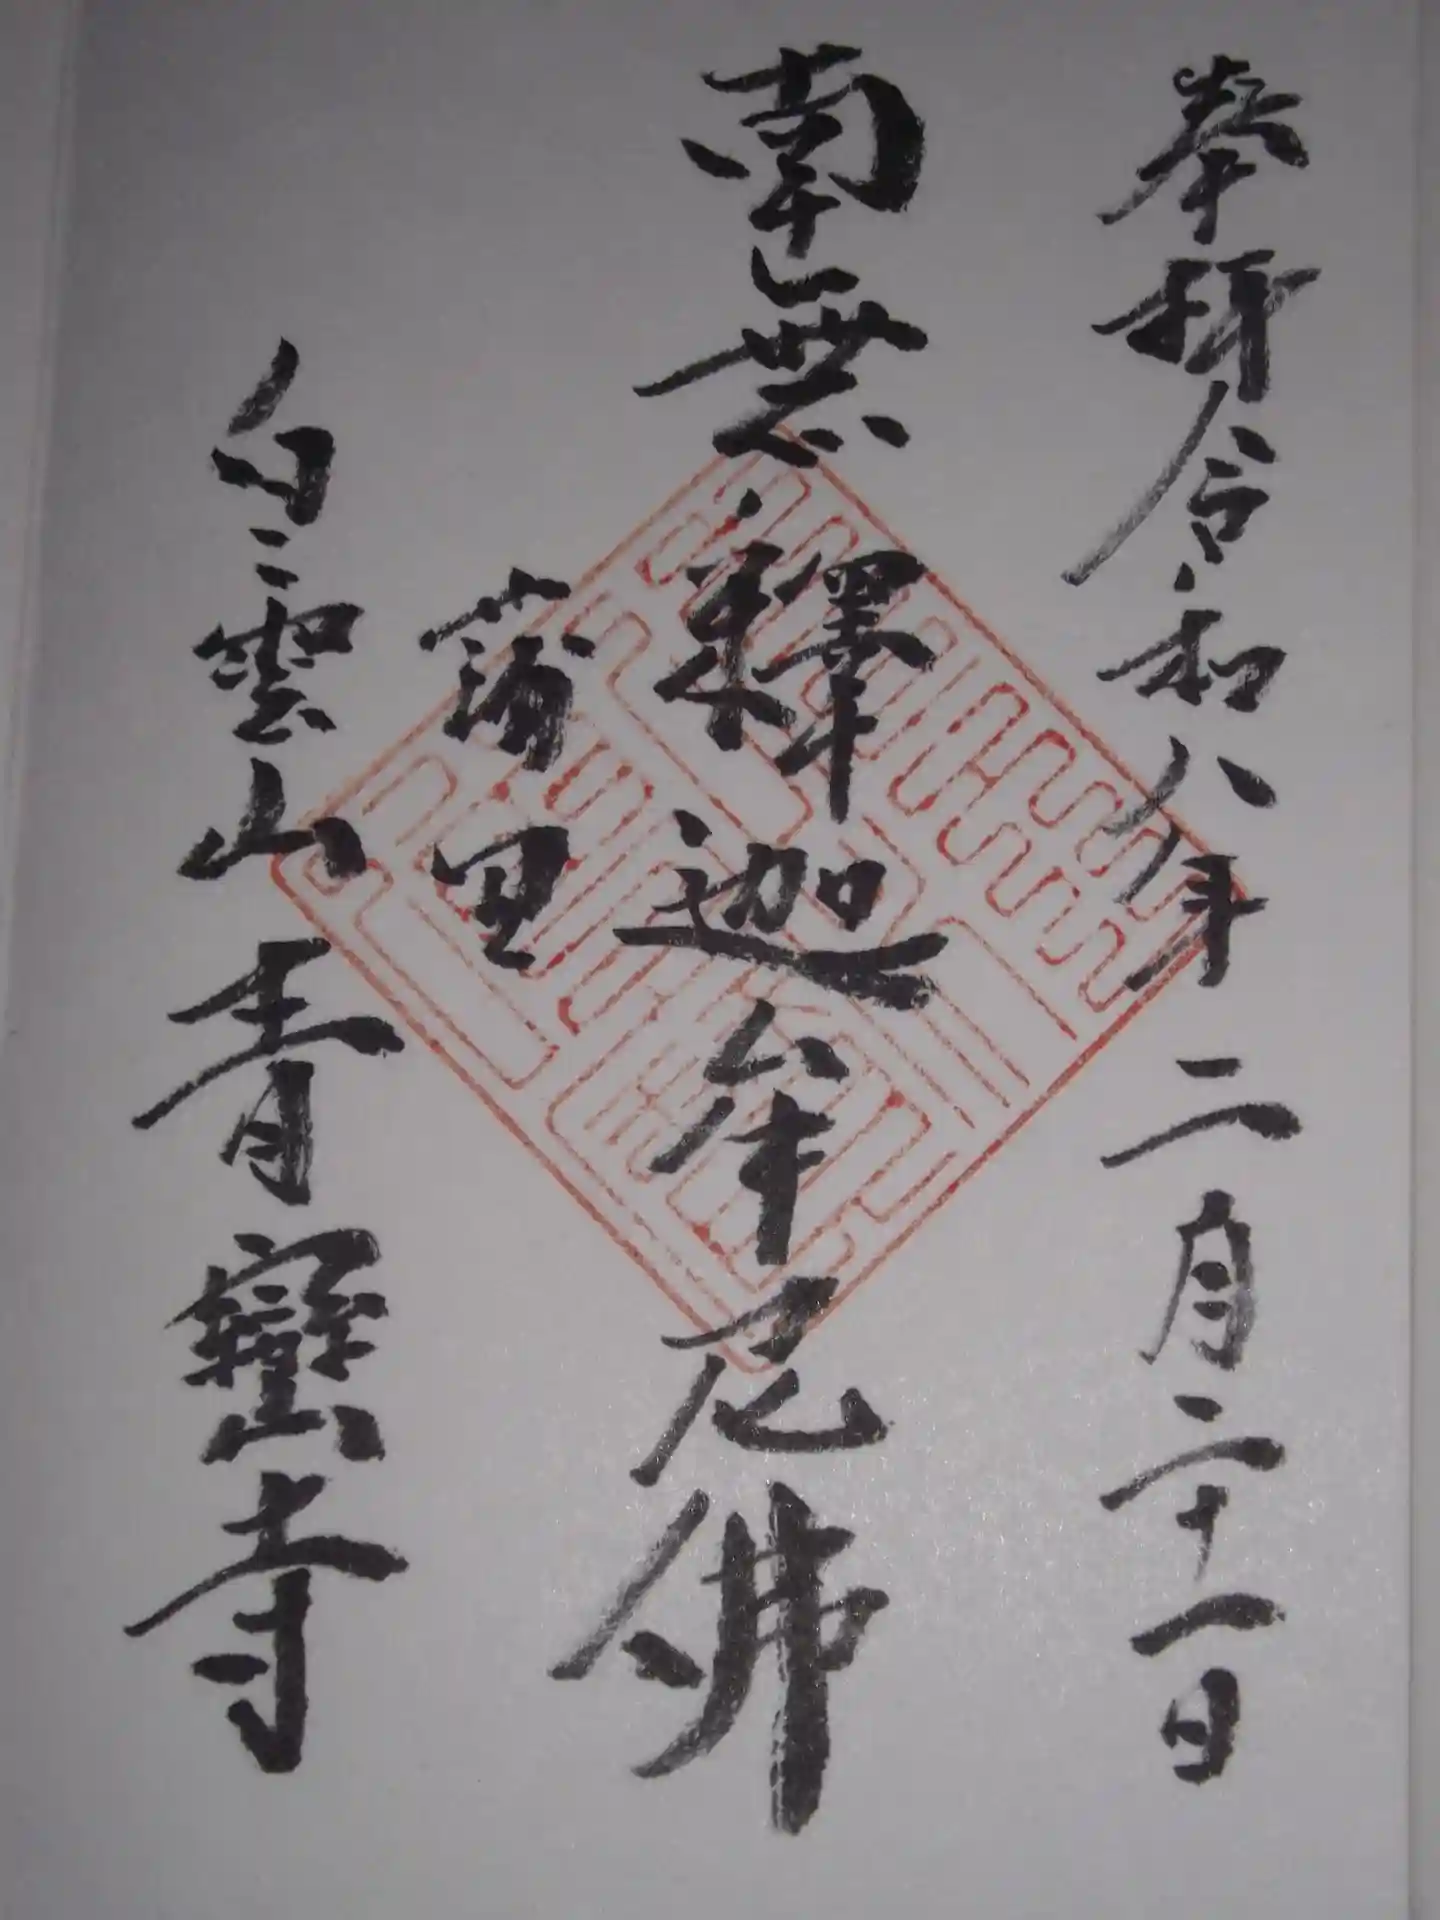 奉拝 令和八年二月二十一日
南無釋迦牟尼佛
蒲里
白雲山青巒寺